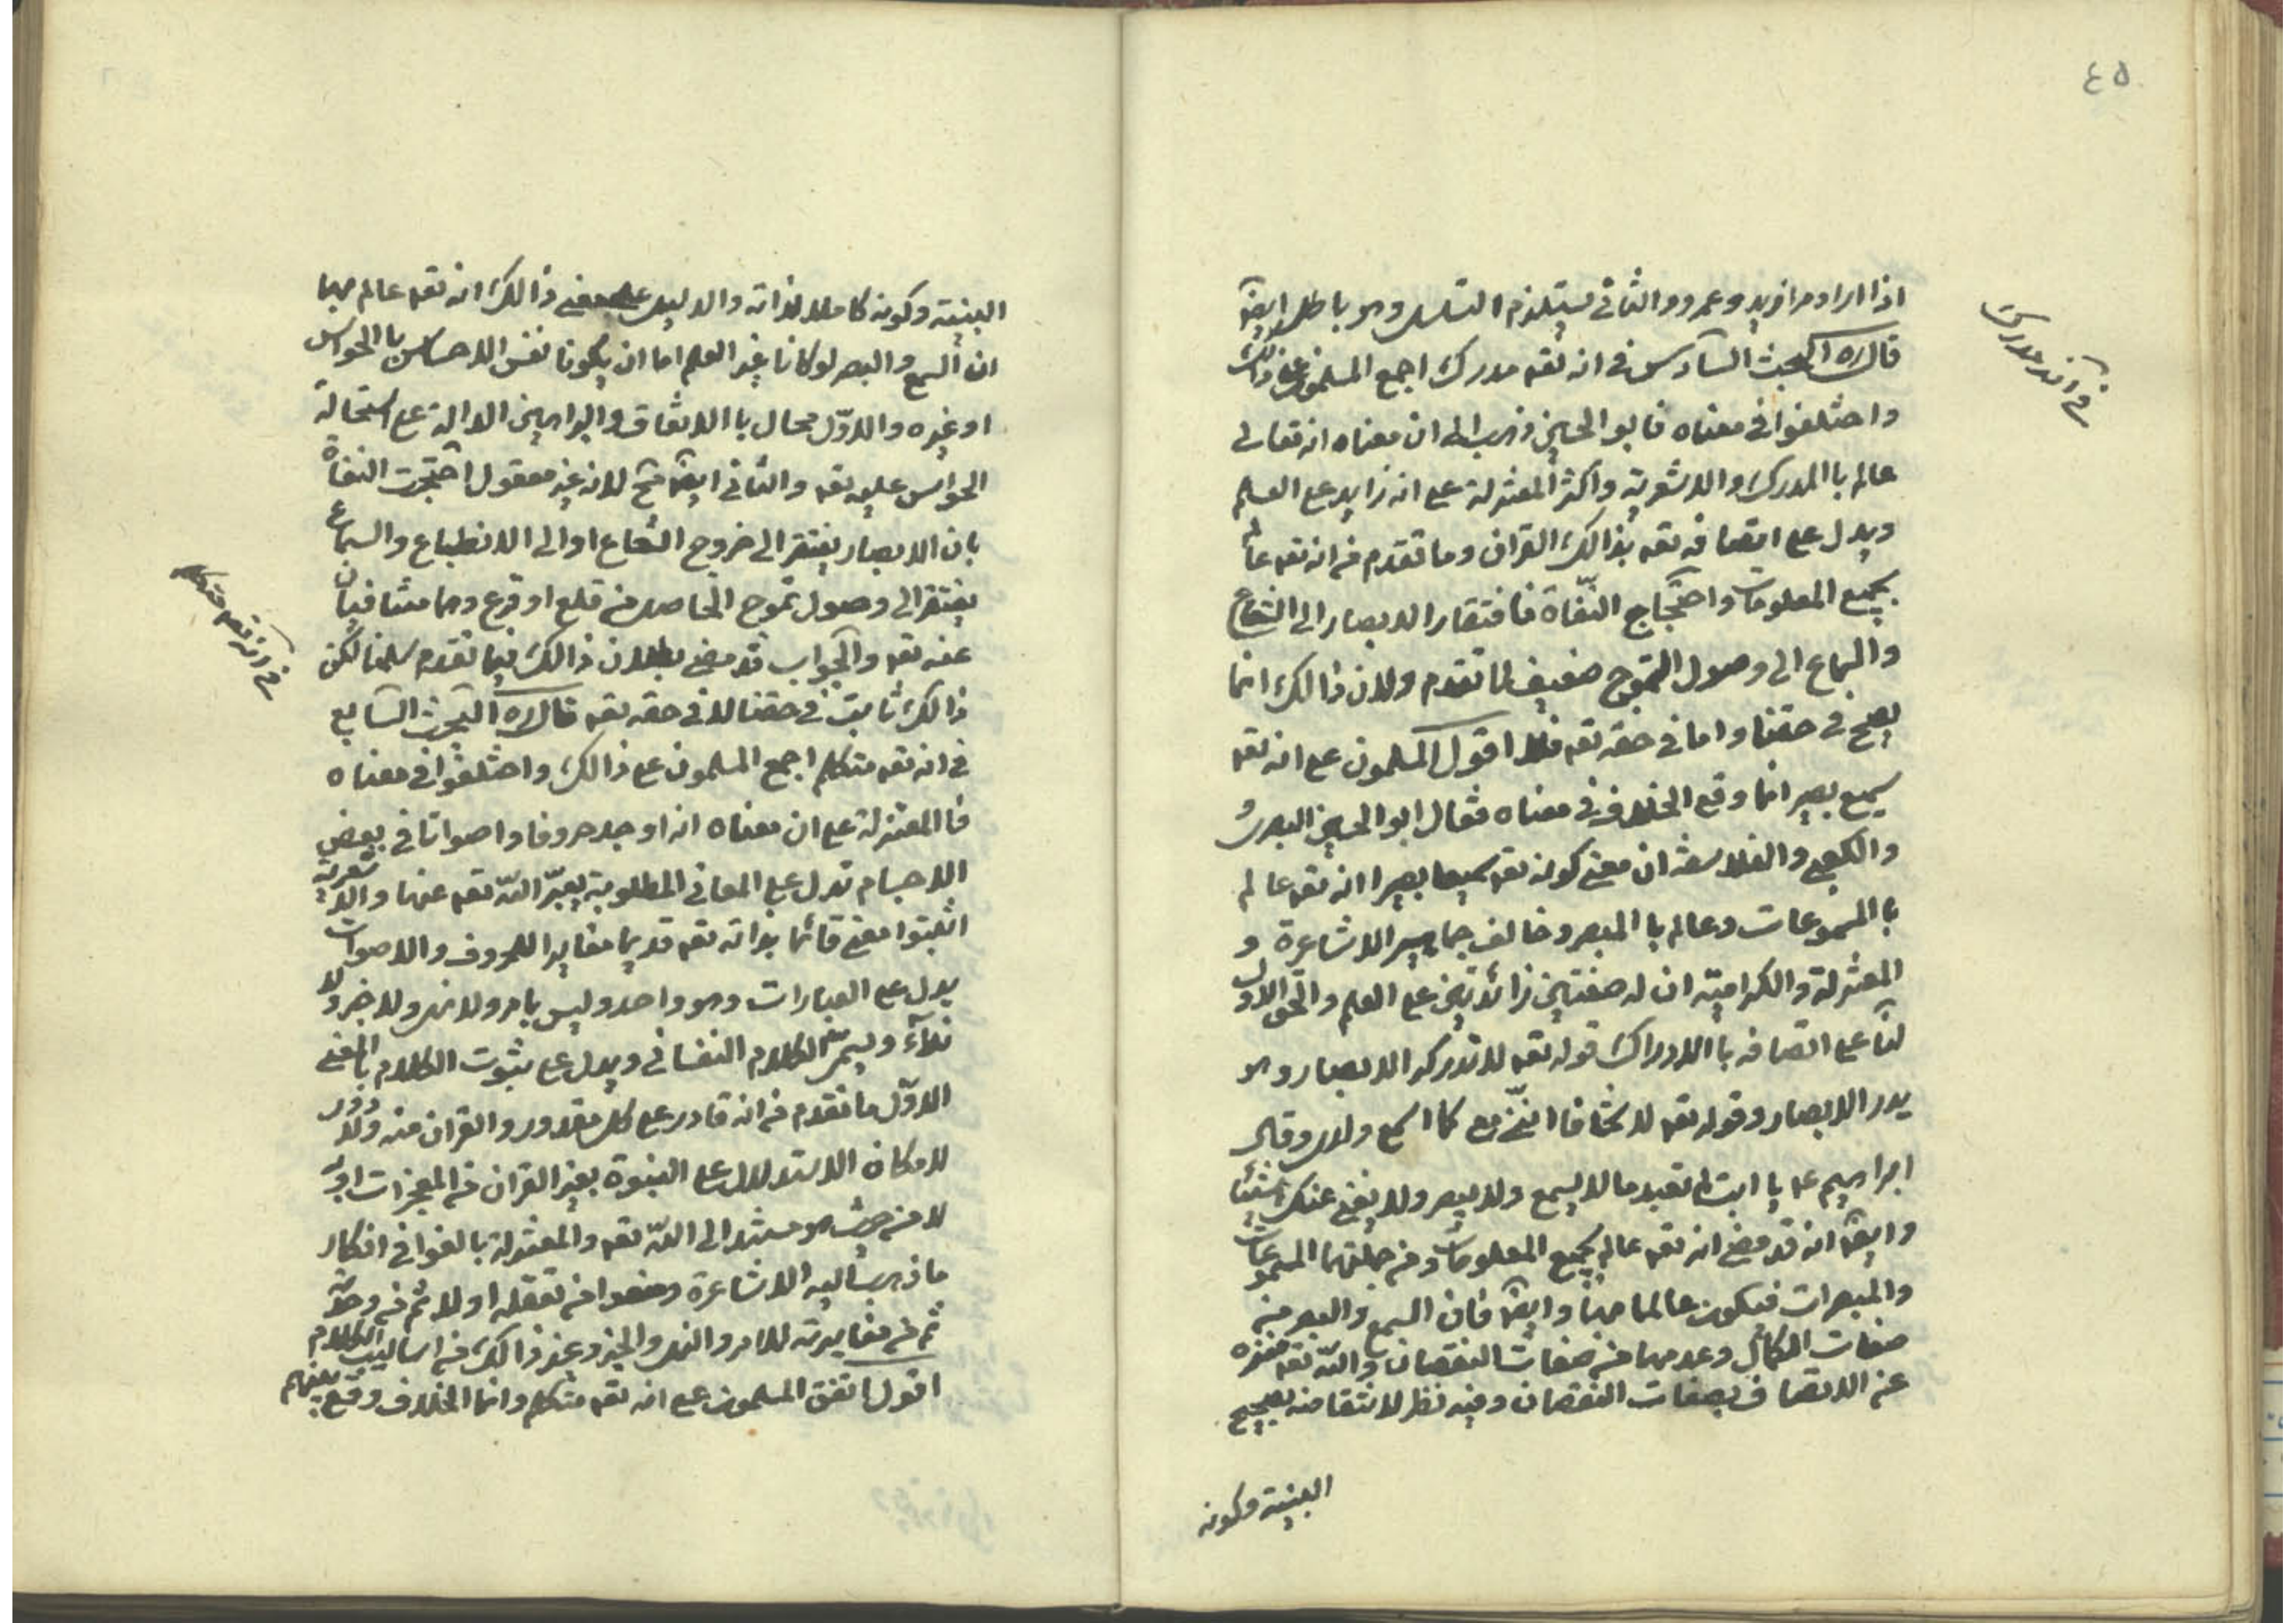 ٤٥
في انه مدرك
اذا اراد مرا فريد و عمرو و الثاني يستلزم التسلسل وهو باطل ايضا
قال ره البحث السادس في انه تعه مدرك اجمع المسلمون على ذالك
واختلفوا في معناه فابو الحسين ذهب الى ان معناه انه تعالى
عالم با المدرك والاشعرية واكثر المعتزلة على انه زايد على العلم
ويدل على اتصافه تعه بذالك القران وما تقدم من انه تعه عالم
بجميع المعلومات واحتجاج النفاة فافتقار الابصار الى الشعاع
والسماع الى وصول التموج ضعيف لما تقدم ولان ذالك انما
يصح في حقنا واما في حقه تعه فلا اقول المسلمون على انه تعه
سميع بصير انما وقع الخلاف في معناه فقال ابو الحسين البصري
والكعبي والفلاسفة ان معنى كونه تعه سميعا بصيرا انه تعه عالم
با المسموعات وعالم با المبصر وخالف جماهير الاشاعرة و
المعتزلة والكرامية ان له صفتين زائدتين على العلم والحق الاول
لنا على اتصافه با الادراك قوله تعه لا تدركه الابصار وهو
يدر الابصار وقوله تعه لا تخافا انني معكما اسمع وارى وقال
ابراهيم عه يا ابت لم تعبد ما لا يسمع ولا يبصر ولا يغني عنك شيئا
وايضا انه قد مضى انه تعه عالم بجميع المعلومات ومن جملتها المسموعات
والمبصرات فيكون عالما بهما وايضا فان السمع والبصر من
صفات الكمال وعدمهما من صفات النقصان والله تعه منزه
عن الاتصاف بصفات النقصان وفيه نظر لانتقاضه بصحيح
البنية وكونه
البنية وكونه كاملا لذاته والدليل على معنى ذالك انه تعه عالم بهما
ان السمع والبصر لو كانا غير العلم اما ان يكونا نفس الاحساس با الحواس
او غيره والاول محال با الاتفاق والبراهين الدالة على استحالة
الحواس عليه تعه والثاني ايضا مح لانه غير معقول احتجت النفاة
بان الابصار يفتقر الى خروج الشعاع او الى الانطباع والسماع
يفتقر الى وصول تموج الحاصل من قلع او قرع وهما منتافيان
عنه تعه والجواب قد مضى بطلان ذالك فيما تقدم سلمنا لكن
ذالك ثابت في حقنا لا في حقه تعه قال ره البحث السابع
في انه تعه متكلم
في انه تعه متكلم اجمع المسلمون على ذالك واختلفوا في معناه
فا المعتزلة على ان معناه انه اوجد حروفا واصواتا في بعض
الاجسام تدل على المعاني المطلوبة يعبر الله تعه عنها والاشعرية
اثبتوا معنى قائما بذاته تعه قديما مغايرا للحروف والاصوات
يدل على العبارات وهو واحد وليس بامر ولا نهي ولا خبر ولا
نداء ويسمى الكلام النفساني ويدل على ثبوت الكلام با لمعنى
الاول ما تقدم من انه قادر على كل مقدور والقران منه ولا دور
لامكان الاستدلال على النبوة بغير القران من المعجزات او به
لا من حيث هو مستند الى الله تعه والمعتزلة بالغوا في انكار
ما ذهب اليه الاشاعرة ومنعوا من تعقله اولا ثم من وحدته
ثم من مغايرته للامر والنهي والخبر وغير ذالك من اساليب الكلام
اقول اتفق المسلمون على انه تعه متكلم وانما الخلاف وقع بينهم